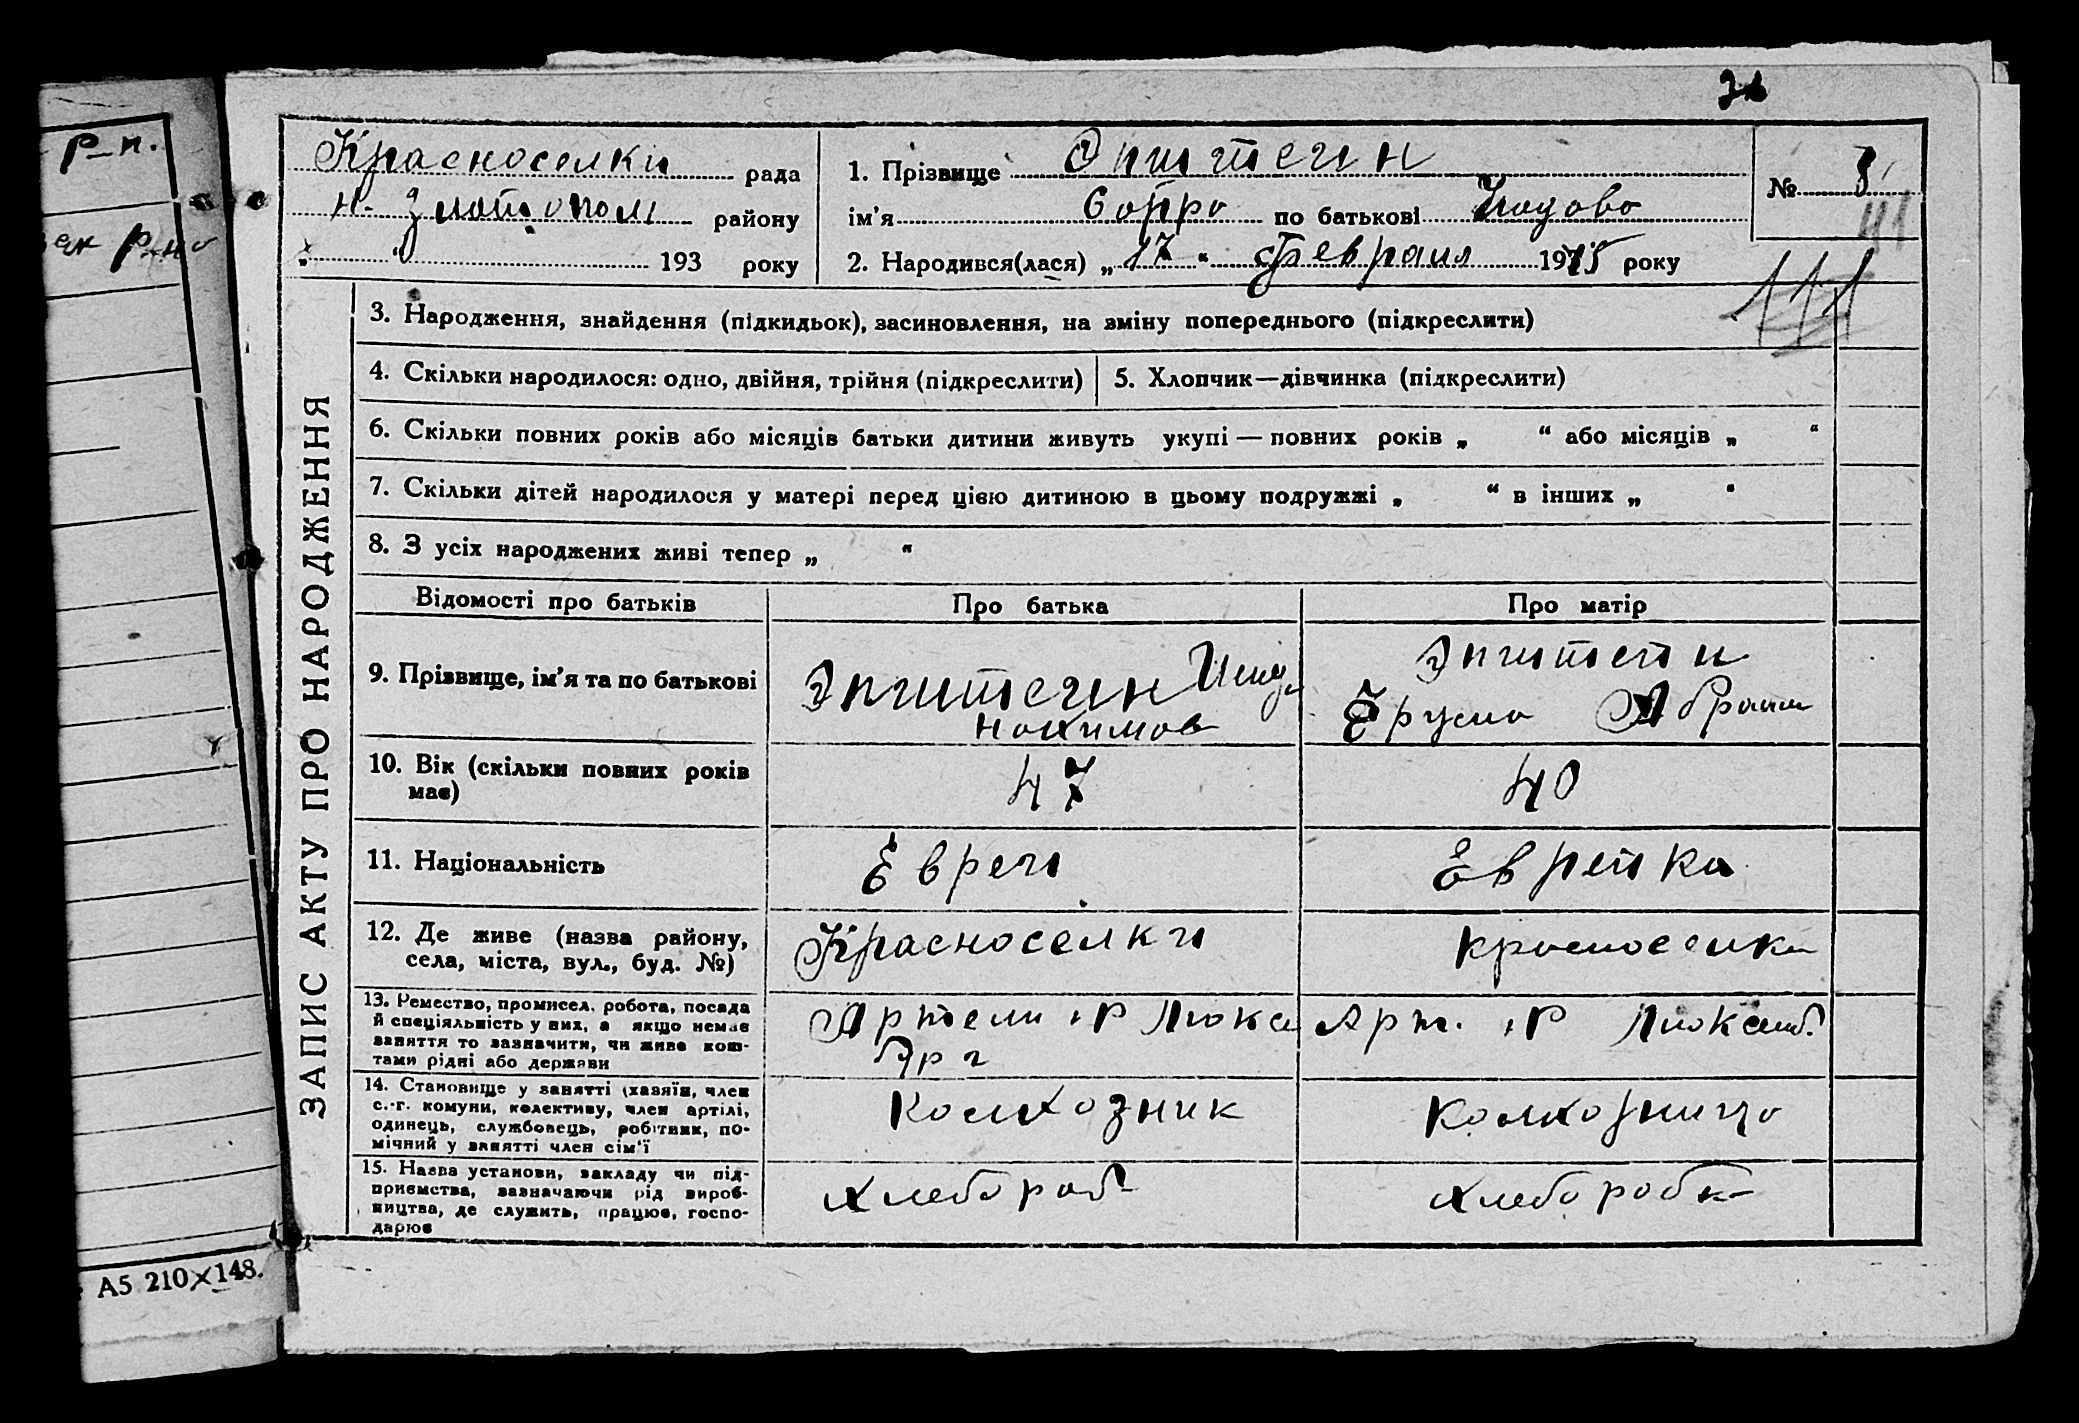 р-н.
Красноселки рада
н- Златополь району
" " 193 року
1. Прізвище Эпштеин
ім'я Сопра по батькові
2. Народився(лася) „17" февраля 1915 року
№ 8
111
3. Народження, знайдення (підкидьок), засиновлення, на зміну попереднього (підкреслити)
4. Скільки народилося: одно, двійня, трійня (підкреслити)
5. Хлопчик—дівчинка (підкреслити)
6. Скільки повних років або місяців батьки дитини живуть укупі — повних років „ " або місяців „ "
7. Скільки дітей народилося у матері перед цією дитиною в цьому подружжі „ " в інших „ "
8. З усіх народжених живі тепер „ "
ЗАПИС АКТУ ПРО НАРОДЖЕННЯ
Відомості про батьків
Про батька
Про матір
9. Прізвище, ім'я та по батькові
Эпштеин
Нохимов
Эпштейн
Абрам
10. Вік (скільки повних років
має)
47
40
11. Національність
Евреи
Еврейка
12. Де живе (назва району,
села, міста, вул., буд. №)
Красноселки
Красноселки
13. Ремество, промисел. робота, посада
й спеціяльність у них, а якщо немає
заняття то зазначити, чи живе кош-
тами рідні або держави
Артели Р Люкс
Арт. Р
14. Становище у занятті (хазяїн, член
с.-г. комуни, колективу, член артілі,
одинець, службовець, робітник, по-
мічний у занятті член сім'ї
Колхозник
Колхозница
15. Назва установи, закладу чи під-
приємства, зазначаючи рід вироб-
ництва, де служить, працює, госпо-
дарює
хлебороб
хлеборобка
А5 210×148.